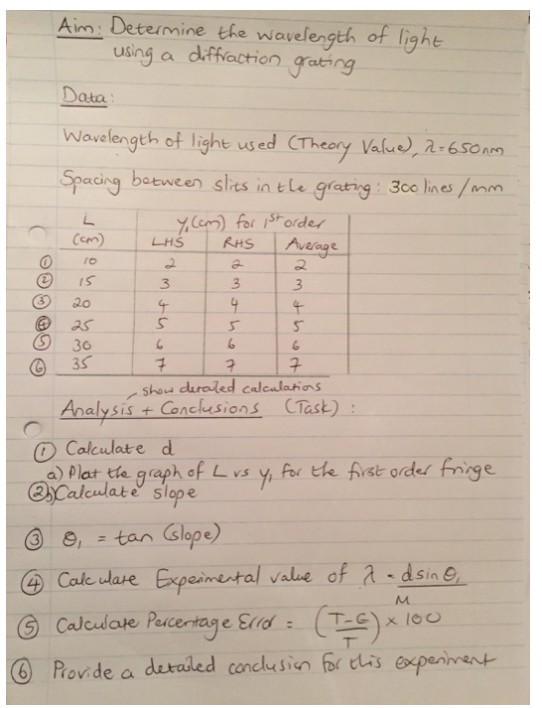 Aim: Determine the wavelength of light
using a diffraction grating
Data:
Wavelength of light used (Theory Value), λ=650nm
Spacing between slits in the grating: 300 lines/mm
L (cm) y₁(cm) for 1st order
LHS RHS Average
① 10 2 2 2
② 15 3 3 3
③ 20 4 4 4
④ 25 5 5 5
⑤ 30 6 6 6
⑥ 35 7 7 7
show detailed calculations
Analysis + Conclusions (Task):
① Calculate d
a) Plot the graph of L vs y₁ for the first order fringe
② b) Calculate slope
③ θ₁ = tan (slope)
④ Calculate Experimental value of λ = dsinθ₁/M
⑤ Calculate Percentage Error = (T-E/T) × 100
⑥ Provide a detailed conclusion for this experiment